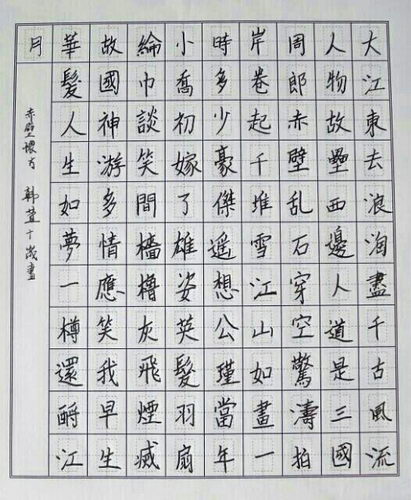 大江東去浪淘盡千古風流
人物故壘西邊人道是三國
周郎赤壁乱石穿空驚濤拍
岸卷起千堆雪江山如畫一
時多少豪傑遥想公瑾當年
小喬初嫁了雄姿英髮羽扇
綸巾談笑間檣櫓灰飛煙滅
故國神游多情應笑我早生
華髮人生如夢一樽還酹江
月
赤壁懷古 韩 十歲